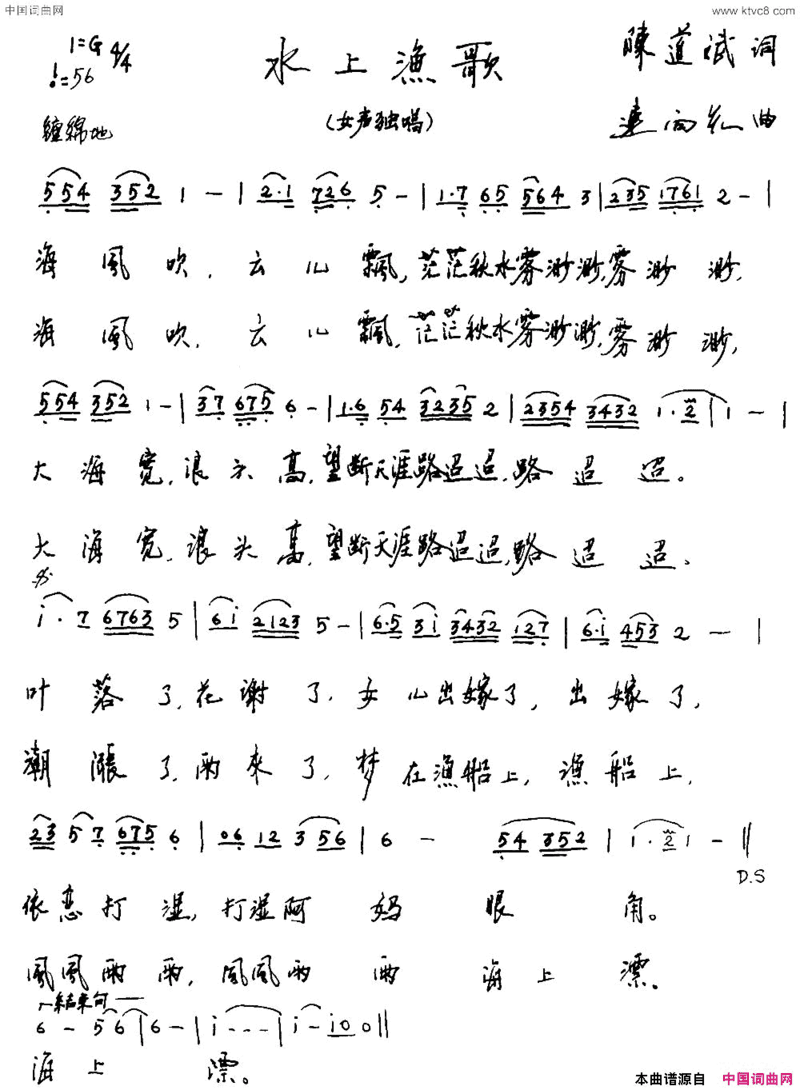 中国词曲网 www.ktvc8.com
1=G 4/4
♩=56
水上漁歌
陳道斌 词
(女声独唱)
连向先 曲
缠綿地
554 352 1 - | 2·1 726 5 - | 1·7 65 564 3 | 235 1761 2 - |
海風吹，云儿飄，茫茫秋水雾渺渺，雾渺渺，
海風吹，云儿飄，茫茫秋水雾渺渺，雾渺渺，
554 352 1 - | 37 675 6 - | 1·6 54 3235 2 | 2354 3432 1·2 | 1 - |
大海宽，浪头高，望断天涯路迢迢，路迢迢。
大海宽，浪头高，望断天涯路迢迢，路迢迢、
i·7 6763 5 | 6i 2123 5 - | 6·5 3i 3432 127 | 6·i 453 2 - |
叶落了，花谢了，女儿出嫁了，出嫁了，
潮漲了，雨來了，梦在漁船上，漁船上，
23 57 675 6 | 06 12 3 56 | 6 - 54 352 | 1·2 1 - ||
D.S
依恋打湿，打湿阿妈眼角。
風風雨雨，風風雨雨海上漂。
结束句
6 - 56 | 6 - | i - - - | i - i00 ||
海上漂。
本曲谱源自 中国词曲网